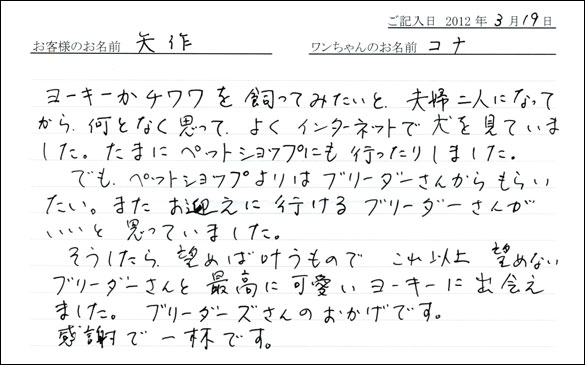 ご記入日 2012 年 3 月 19 日
お客様のお名前 矢作 ワンちゃんのお名前 コナ
ヨーキーかチワワを飼ってみたいと、夫婦二人になって
から、何となく思って、よくインターネットで犬を見ていま
した。たまにペットショップにも行ったりしました。
でも、ペットショップよりはブリーダーさんからもらい
たい。またお迎えに行けるブリーダーさんが
いいと思っていました。
そうしたら、望めば叶うもので これ以上 望めない
ブリーダーさんと最高に可愛いヨーキーに出会え
ました。ブリーダーズさんのおかげです。
感謝で一杯です。